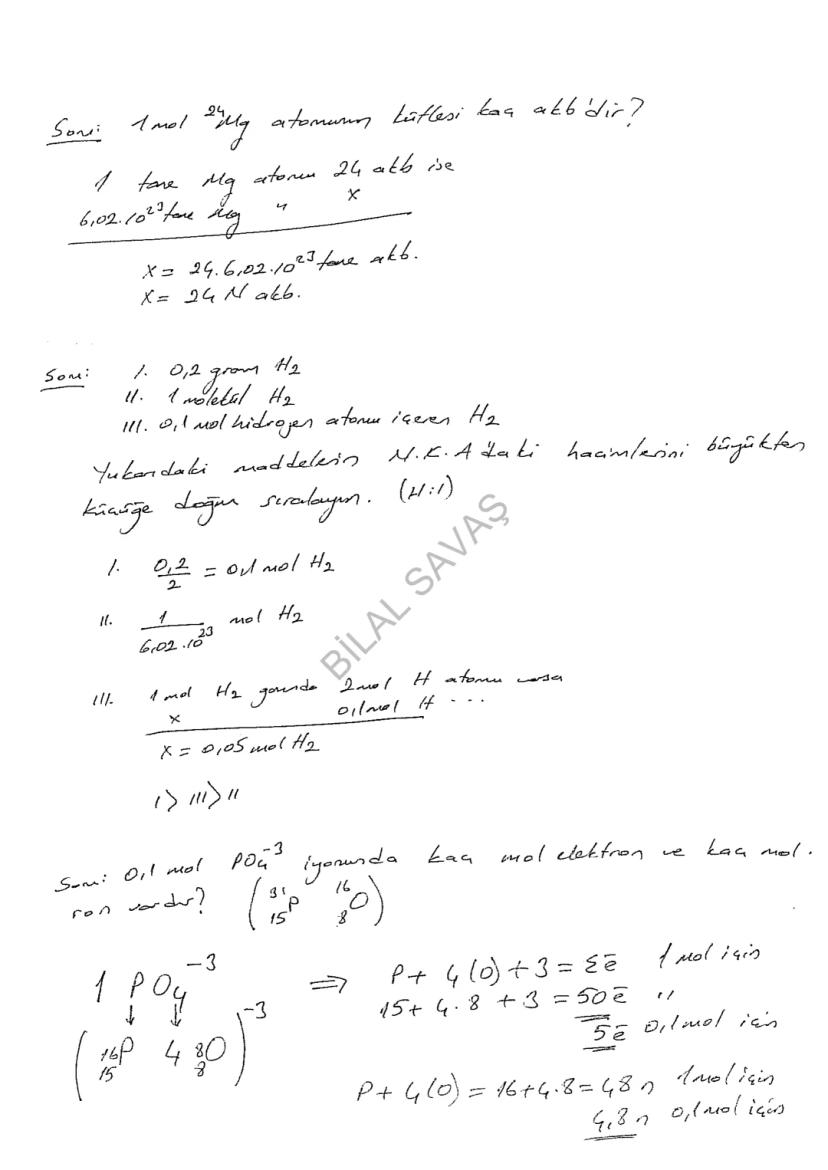 Soru: 1 mol ²⁴Mg atomunun kütlesi kaç akb'dir?
1 tane Mg atomu 24 akb ise
6,02.10²³ tane Mg " x
x = 24.6,02.10²³ tane akb.
x = 24 N akb.
Soru: I. 0,2 gram H₂
II. 1 molekül H₂
III. 0,1 mol hidrojen atomu içeren H₂
Yukarıdaki maddelerin N.K.A'daki hacimlerini büyükten
küçüğe doğru sıralayın. (H:1)
I. 0,2/2 = 0,1 mol H₂
II. 1/6,02.10²³ mol H₂
III. 1 mol H₂ gazında 2 mol H atomu varsa
x 0,1 mol H ...
x = 0,05 mol H₂
I > III > II
Soru: 0,1 mol PO₄⁻³ iyonunda kaç mol elektron ve kaç mol.
ron vardır? (³¹₁₅P ¹⁶₈O)
1 PO₄⁻³ ⇒ P + 4(O) + 3 = Σē 1 mol için
15 + 4.8 + 3 = 50ē "
5ē 0,1 mol için
(16P15 4 8O8)⁻³
P + 4(O) = 16 + 4.8 = 48 n 1 mol için
4,8 n 0,1 mol için
BİLAL SAVAŞ